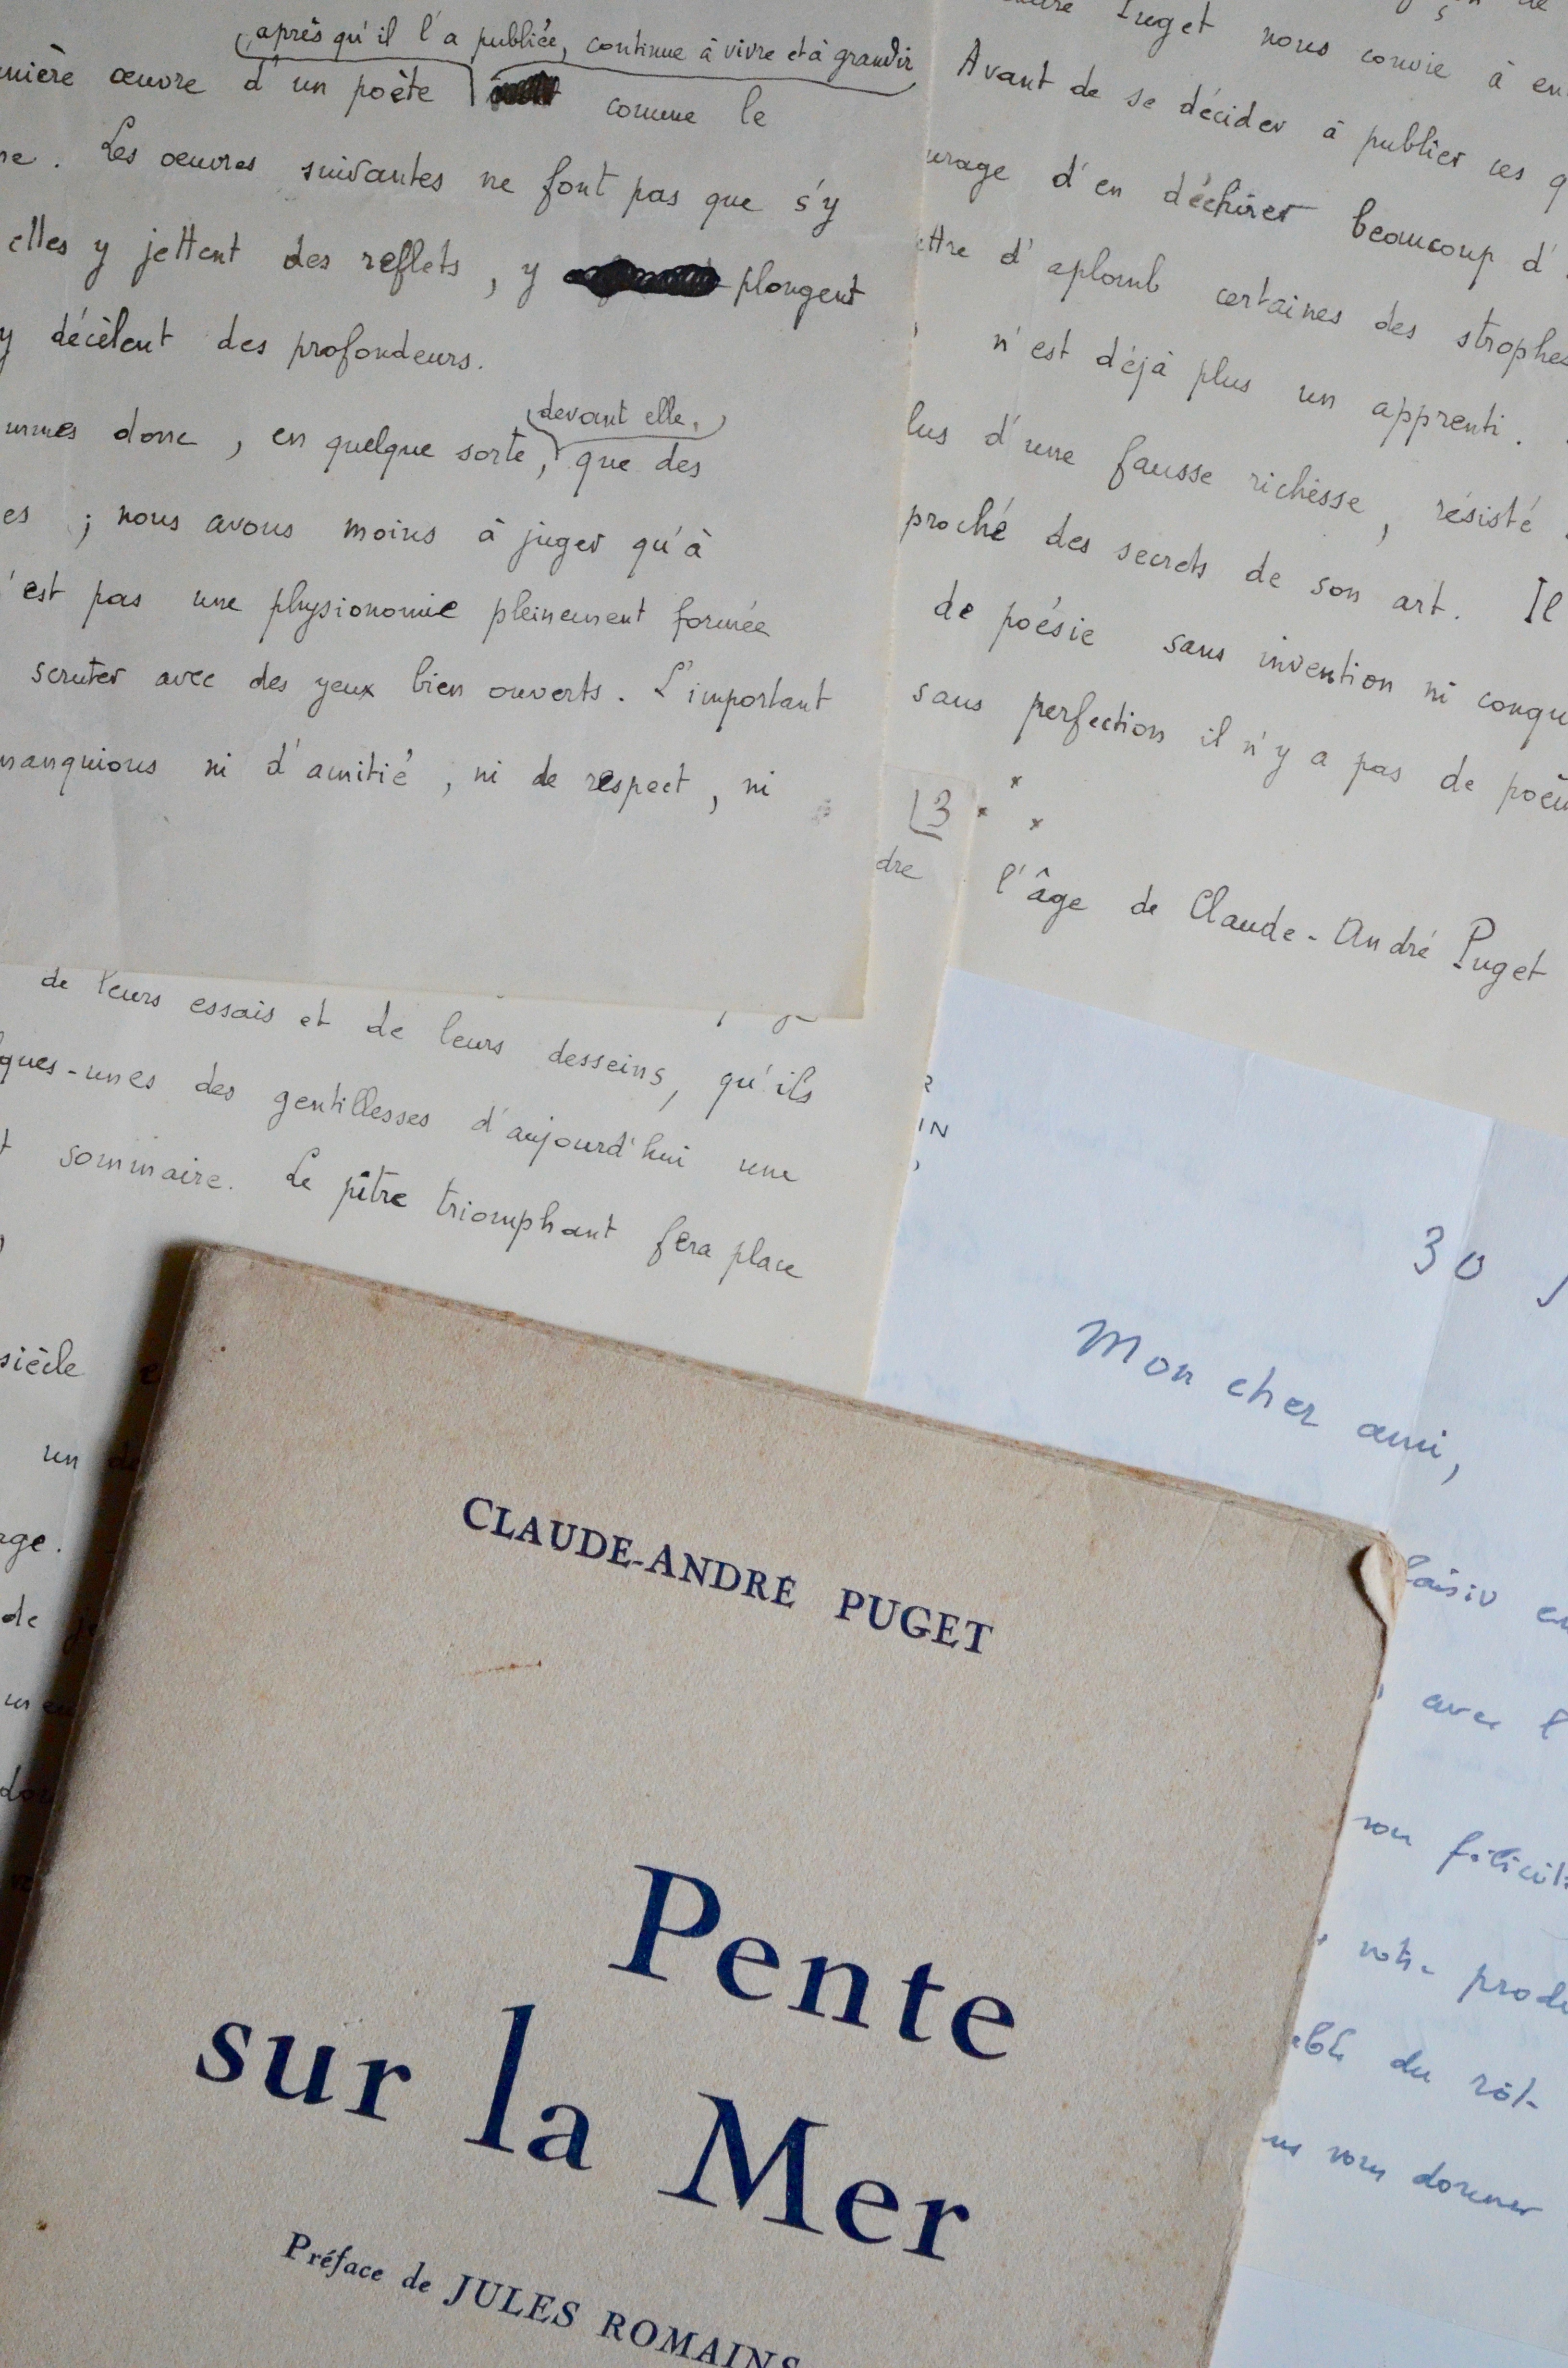 après qu'il l'a publiée, continue à vivre et à grandir
mière œuvre d'un poète comme le
Les œuvres suivantes ne font pas que s'y
elles y jettent des reflets, y plongent
y décèlent des profondeurs.
devant elle,
ummes donc, en quelque sorte, que des
es ; nous avons moins à juger qu'à
'est pas une physionomie pleinement formée
scruter avec des yeux bien ouverts. L'important
manquions ni d'amitié, ni de respect, ni
Puget nous convie à en
Avant de se décider à publier ces q
urage d'en déchirer beaucoup d'
ettre d'aplomb certaines des strophes
n'est déjà plus un apprenti.
lus d'une fausse richesse, résisté
proché des secrets de son art. Il
de poésie sans invention ni conqu
sans perfection il n'y a pas de poè
3
dre
l'âge de Claude-André Puget
de leurs essais et de leurs desseins, qu'ils
ques-unes des gentillesses d'aujourd'hui une
t sommaire. Le pitre triomphant fera place
siècle
un de
age.
de
don
R
IN
30 J
Mon cher ami,
laisir en
avec l
votre produ
du rôl
vous donner
CLAUDE-ANDRÉ PUGET
Pente
sur la Mer
Préface de JULES ROMAINS